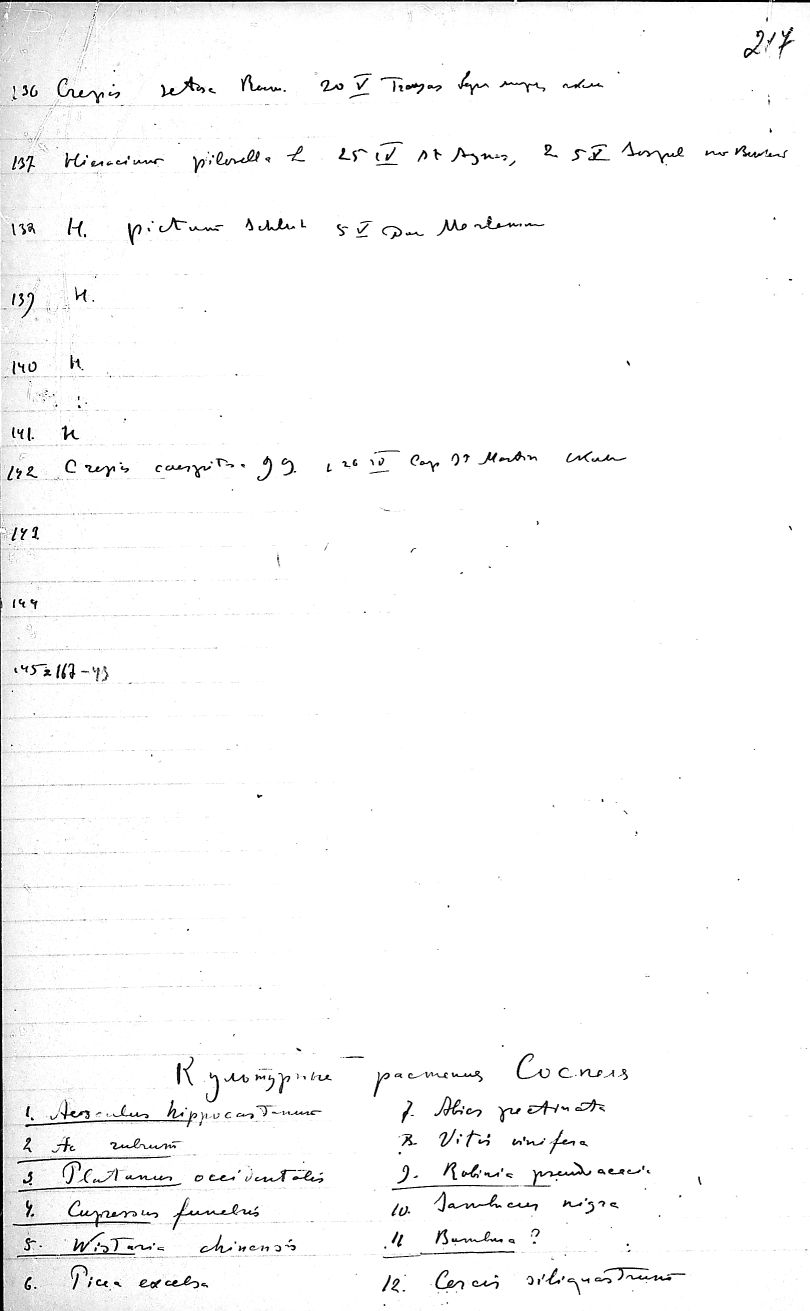 217
136 Crepis setosa 20 V
137 Hieracium pilosella L 25 IV St Agnes, 2 5 V Sospel
138 H. pictum Schleich 5 V
139 H.
140 H.
141. H
142 Crepis caespitosa g g. 26 IV Cap St Martin
142
144
145=167-43
Культурные растения Соспеля
1. Aesculus hippocastanum
7. Abies pectinata
2 Ae rubrum
8. Vitis vinifera
3. Platanus occidentalis
9. Robinia pseudoacacia
4. Cupressus funebris
10. Sambucus nigra
5. Wistaria chinensis
11 Bambusa ?
6. Picea excelsa
12. Cercis siliquastrum